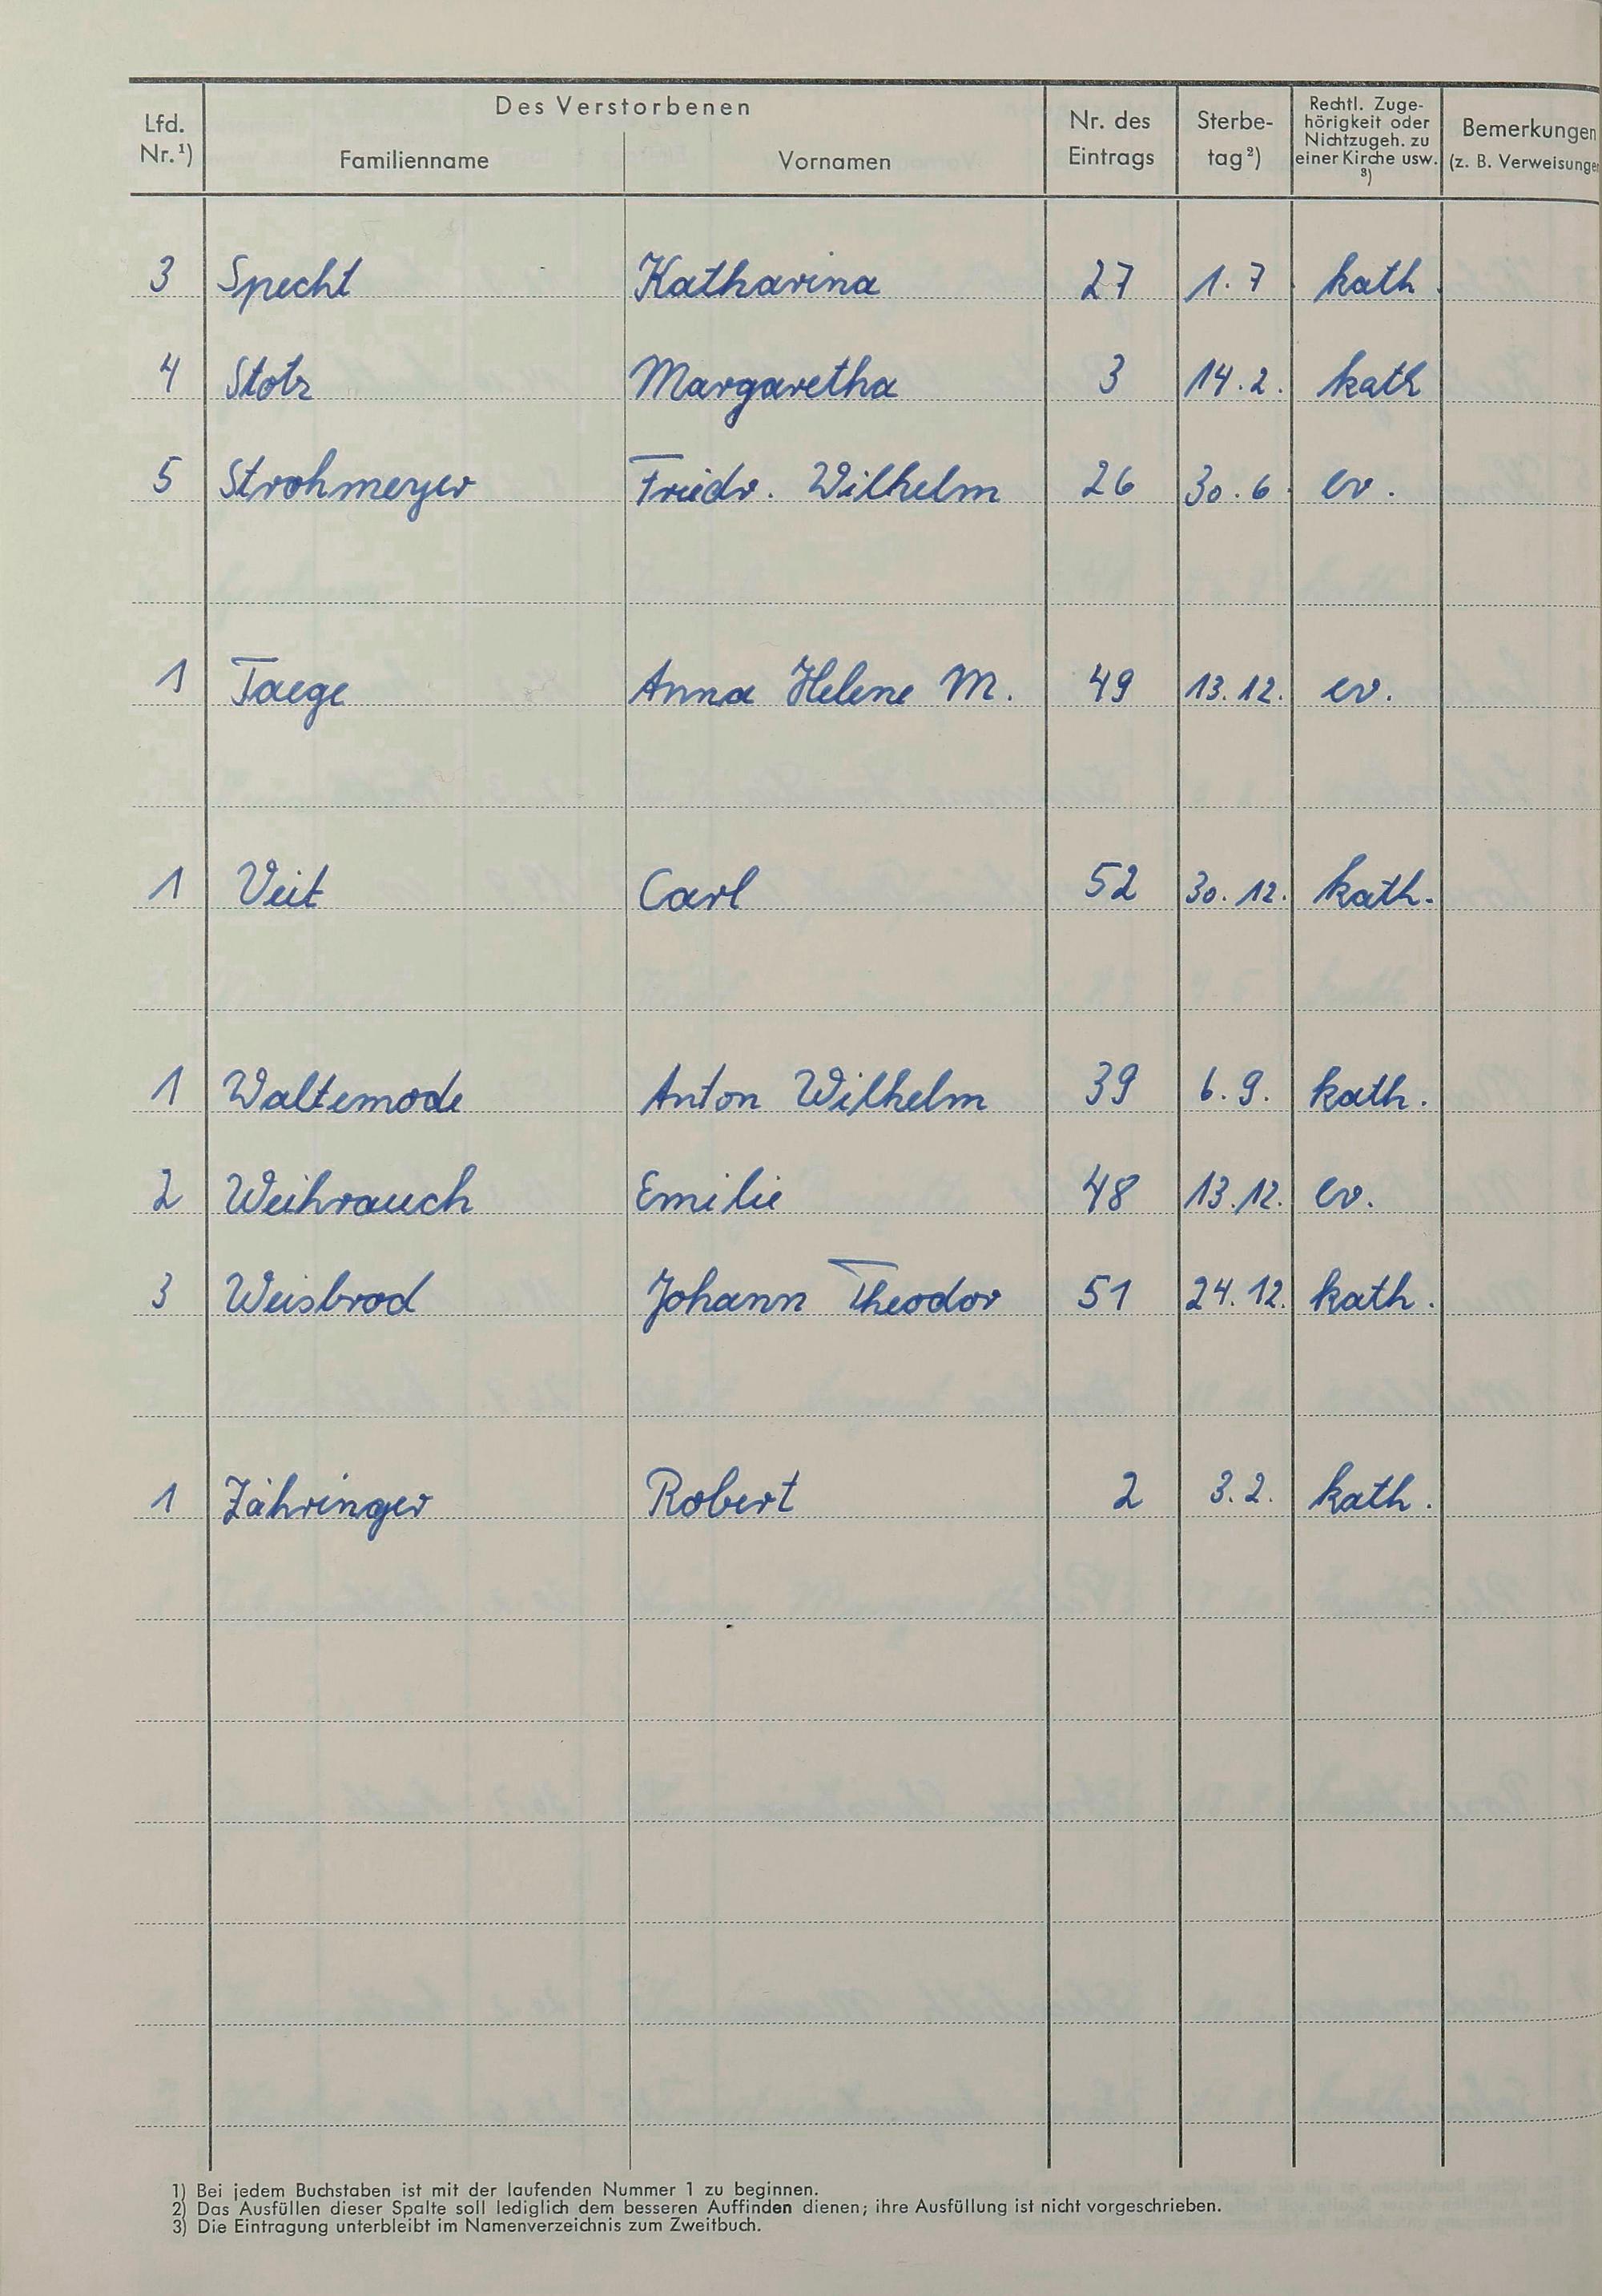 Lfd. Nr.¹) Des Verstorbenen Nr. des Eintrags Sterbe-tag²) Rechtl. Zuge-hörigkeit oder Nichtzugeh. zu einer Kirche usw. ³) Bemerkungen (z. B. Verweisungen
Familienname Vornamen
3 Specht Katharina 27 1.7. kath.
4 Stolz Margaretha 3 14.2. kath
5 Strohmeyer Friedr. Wilhelm 26 30.6. ev.
1 Taege Anna Helene M. 49 13.12. ev.
1 Veit Carl 52 30.12. kath.
1 Waltemode Anton Wilhelm 39 6.9. kath.
2 Weihrauch Emilie 48 13.12. ev.
3 Weisbrod Johann Theodor 51 24.12. kath.
1 Zähringer Robert 2 3.2. kath.
1) Bei jedem Buchstaben ist mit der laufenden Nummer 1 zu beginnen.
2) Das Ausfüllen dieser Spalte soll lediglich dem besseren Auffinden dienen; ihre Ausfüllung ist nicht vorgeschrieben.
3) Die Eintragung unterbleibt im Namenverzeichnis zum Zweitbuch.